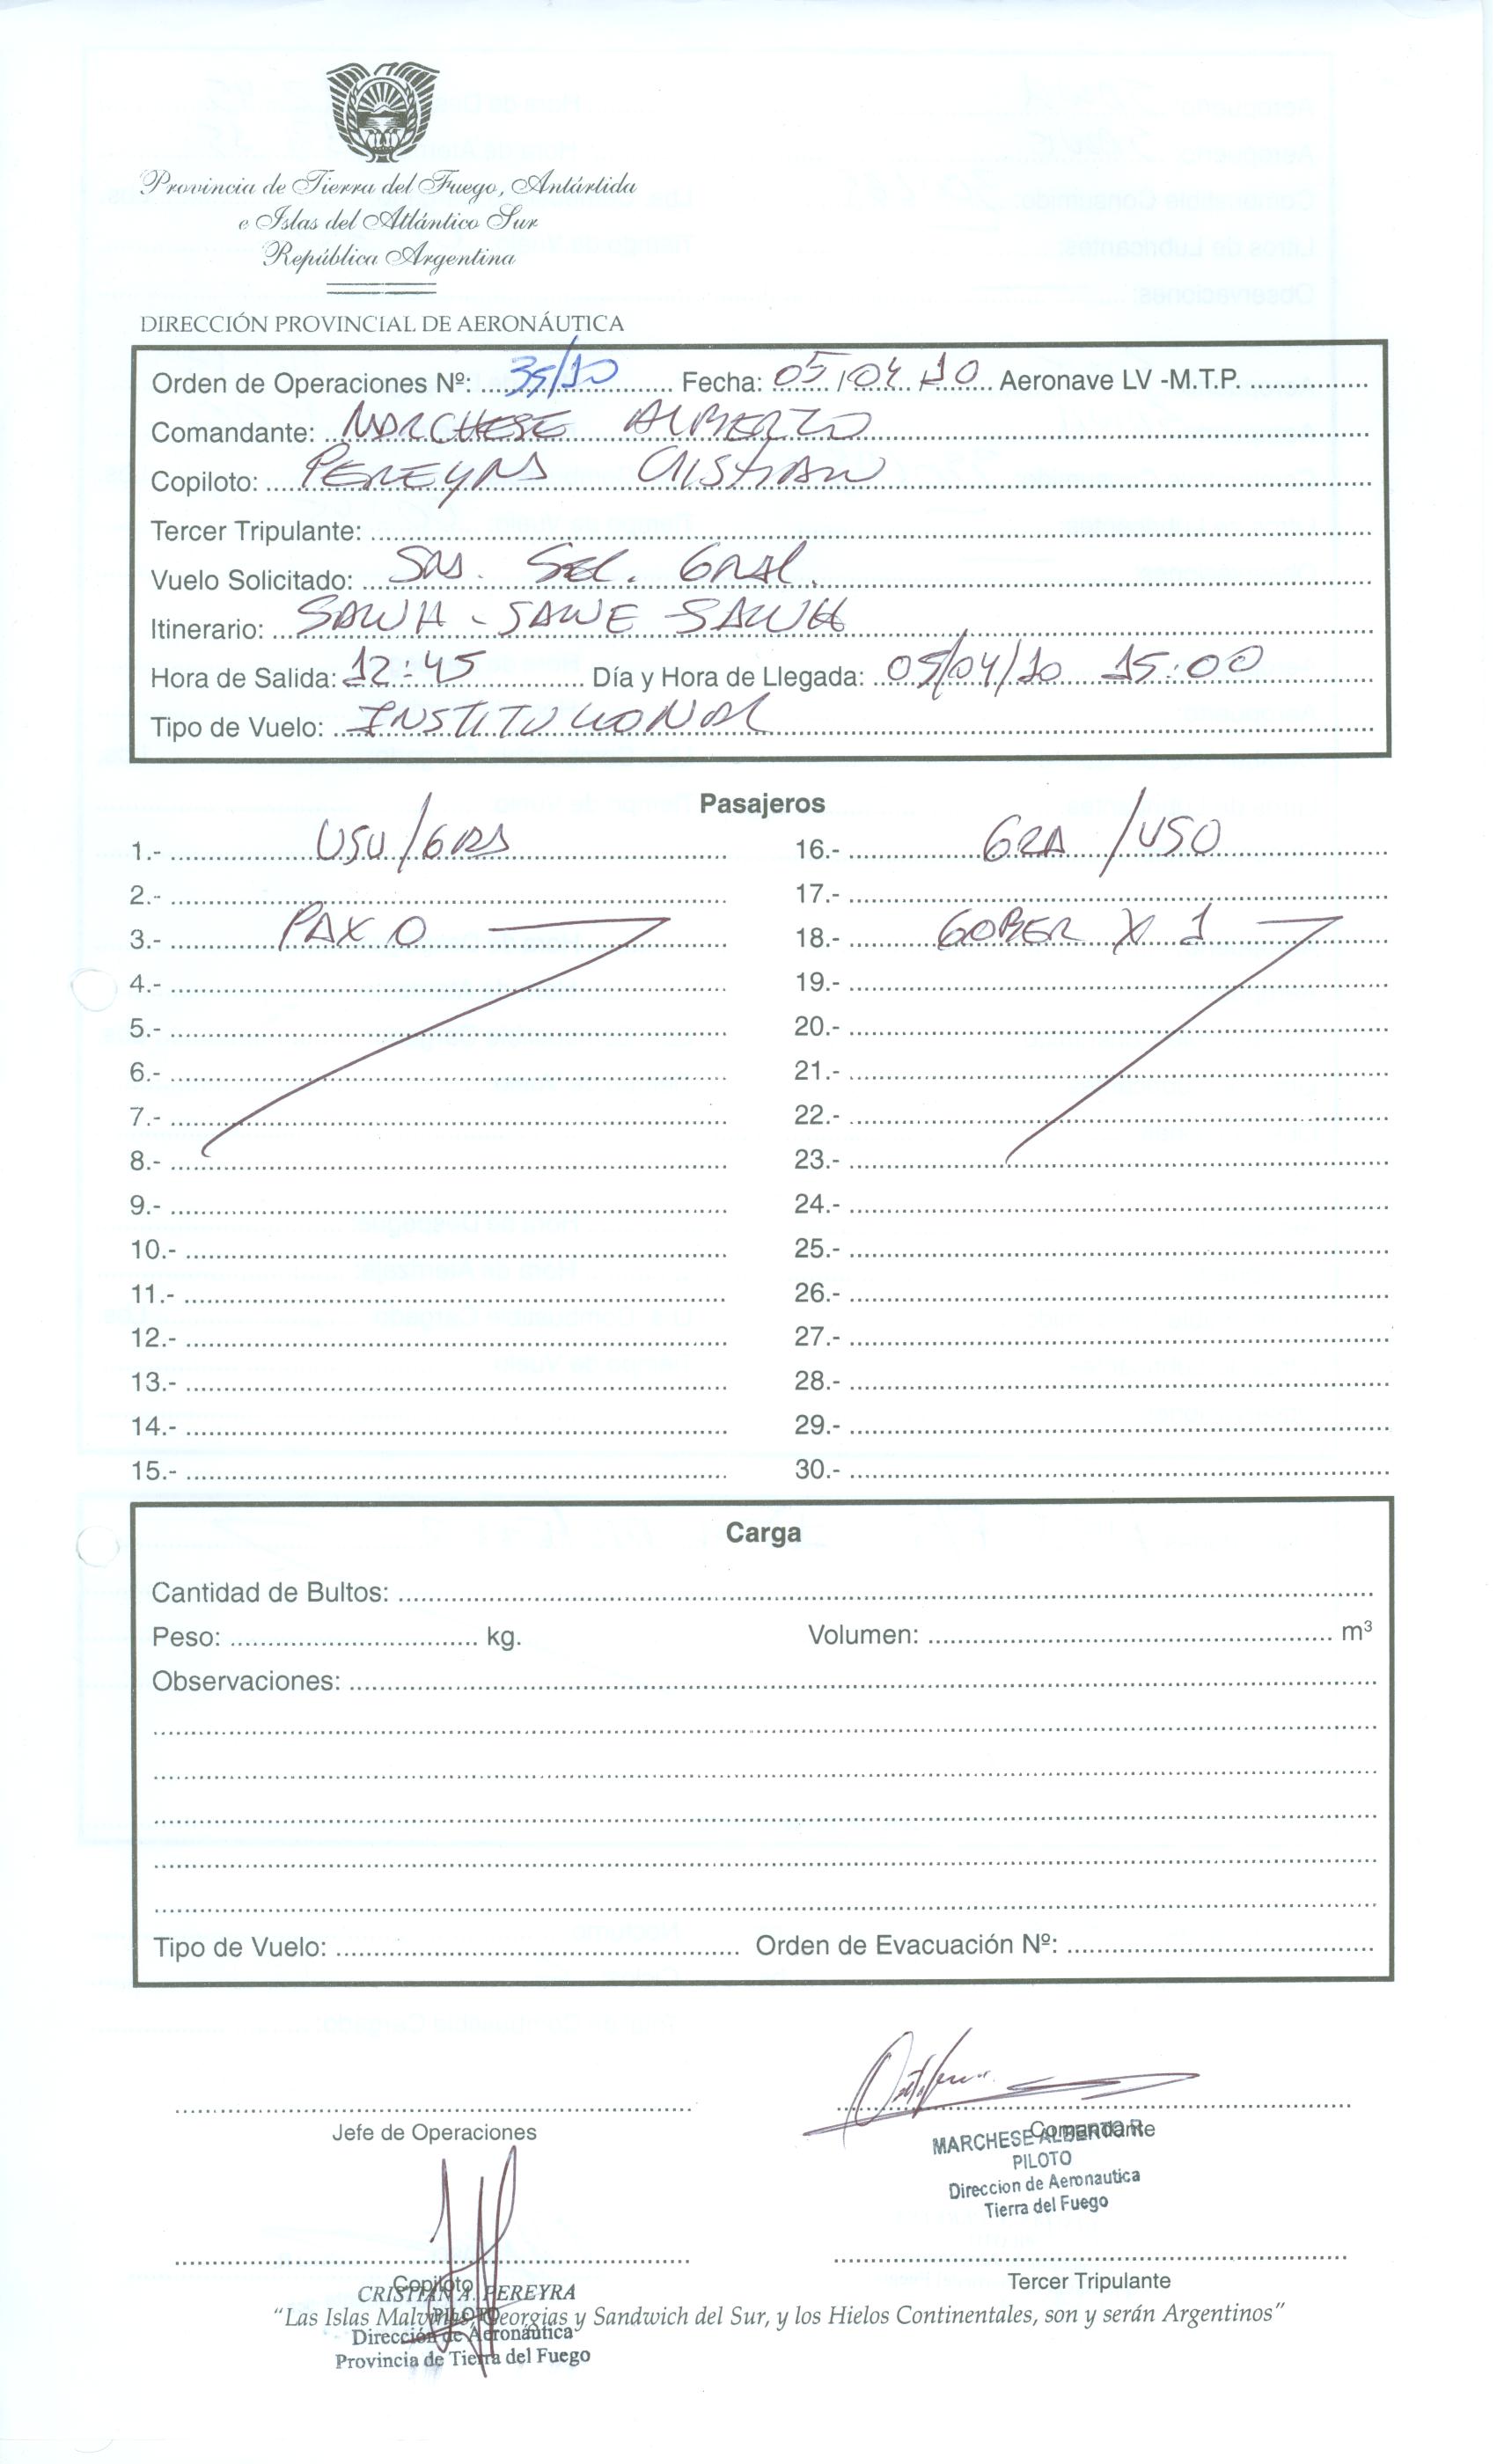 Provincia de Tierra del Fuego, Antártida
e Islas del Atlántico Sur
República Argentina
DIRECCIÓN PROVINCIAL DE AERONÁUTICA
Orden de Operaciones Nº: 35/10 Fecha: 05/04/10 Aeronave LV -M.T.P.
Comandante: MARCHESE ALBERTO
Copiloto: PEREYRA CRISTIAN
Tercer Tripulante:
Vuelo Solicitado: Sec. Gral.
Itinerario: SAWH - SAWE - SAWH
Hora de Salida: 12:45 Día y Hora de Llegada: 05/04/10 15:00
Tipo de Vuelo: INSTITUCIONAL
Pasajeros
1.- USU/GRA 16.- GRA /USO
2.- 17.-
3.- PAX 0 18.- GOBER X 1
4.- 19.-
5.- 20.-
6.- 21.-
7.- 22.-
8.- 23.-
9.- 24.-
10.- 25.-
11.- 26.-
12.- 27.-
13.- 28.-
14.- 29.-
15.- 30.-
Carga
Cantidad de Bultos:
Peso: kg. Volumen: m³
Observaciones:
Tipo de Vuelo: Orden de Evacuación Nº:
Jefe de Operaciones Comandante
MARCHESE ALBERTO R.
PILOTO
Direccion de Aeronautica
Tierra del Fuego
Copiloto Tercer Tripulante
CRISTIAN A. PEREYRA
"Las Islas Malvinas, Georgias y Sandwich del Sur, y los Hielos Continentales, son y serán Argentinos"
PILOTO
Dirección de Aeronáutica
Provincia de Tierra del Fuego